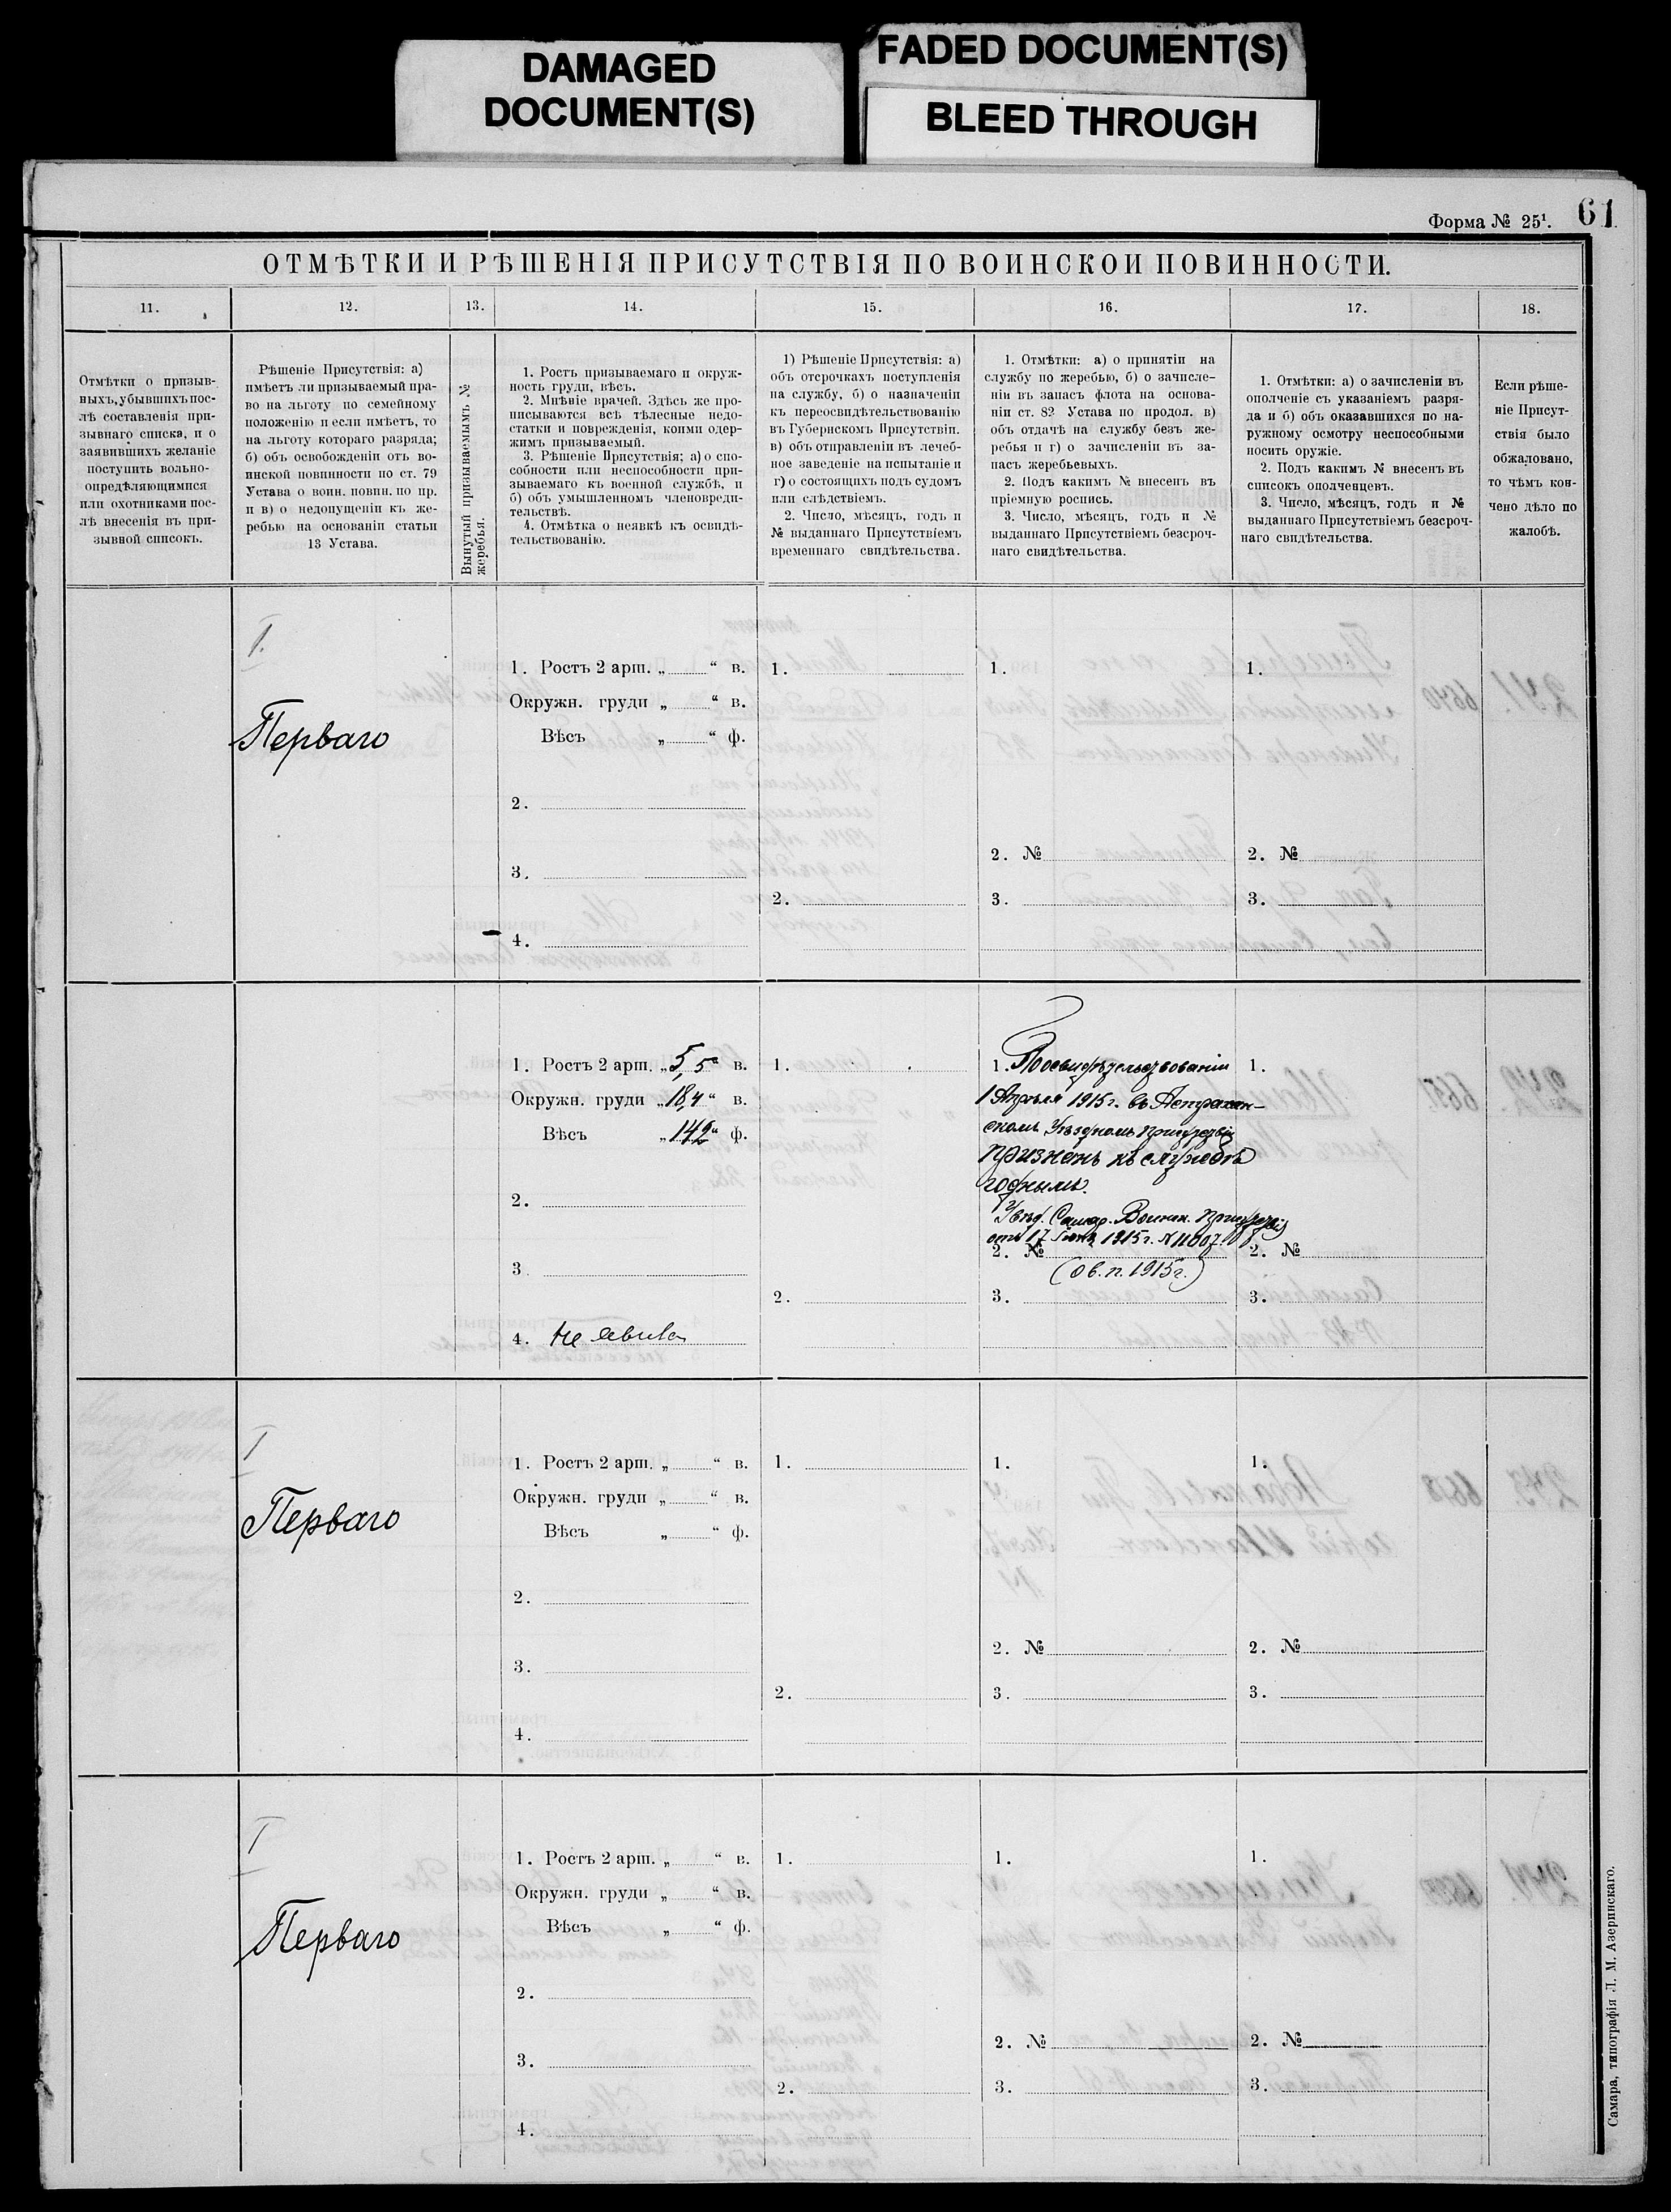 DAMAGED
DOCUMENT(S)
FADED DOCUMENT(S)
BLEED THROUGH
Форма № 25¹. 61
ОТМѢТКИ И РѢШЕНІЯ ПРИСУТСТВІЯ ПО ВОИНСКОИ ПОВИННОСТИ.
11. 12. 13. 14. 15. 16. 17. 18.
Отмѣтки о призыв-
ныхъ, убывшихъ пос-
лѣ составленія при-
зывнаго списка, и о
заявившихъ желаніе
поступить вольно-
опредѣляющимися
или охотниками пос-
лѣ внесенія въ при-
зывной списокъ.
Рѣшеніе Присутствія: а)
имѣетъ ли призываемый пра-
во на льготу по семейному
положенію и если имѣетъ, то
на льготу котораго разряда;
б) объ освобожденіи отъ во-
инской повинности по ст. 79
Устава о воин. повин. по пр.
и в) о недопущеніи къ же-
ребью на основаніи статьи
13 Устава.
Вынутый призываемымъ №
жеребья.
1. Ростъ призываемаго и окруж-
ность груди, вѣсъ.
2. Мнѣніе врачей. Здѣсь же про-
писываются всѣ тѣлесные недо-
статки и поврежденія, коими одер-
жимъ призываемый.
3. Рѣшеніе Присутствія; а) о спо-
собности или неспособности при-
зываемаго къ военной службѣ, и
б) объ умышленномъ членовреди-
тельствѣ.
4. Отмѣтка о неявкѣ къ освидѣ-
тельствованію.
1) Рѣшеніе Присутствія: а)
объ отсрочкахъ поступленія
на службу, б) о назначеніи
къ переосвидѣтельствованію
въ Губернскомъ Присутствіи.
в) объ отправленіи въ лечеб-
ное заведеніе на испытаніе и
г) о состоящихъ подъ судомъ
или слѣдствіемъ.
2. Число, мѣсяцъ, годъ и
№ выданнаго Присутствіемъ
временнаго свидѣтельства.
1. Отмѣтки: а) о принятіи на
службу по жеребью, б) о зачисле-
ніи въ запасъ флота на основа-
ніи ст. 82 Устава по продол. в)
объ отдачѣ на службу безъ же-
ребья и г) о зачисленіи въ за-
пасъ жеребьевыхъ.
2. Подъ какимъ № внесенъ въ
пріемную роспись.
3. Число, мѣсяцъ, годъ и №
выданнаго Присутствіемъ безсроч-
наго свидѣтельства.
1. Отмѣтки: а) о зачисленіи въ
ополченіе съ указаніемъ разря-
да и б) объ оказавшихся по на-
ружному осмотру неспособными
носить оружіе.
2. Подъ какимъ № внесенъ въ
списокъ ополченцевъ.
3. Число, мѣсяцъ, годъ и №
выданнаго Присутствіемъ безсроч-
наго свидѣтельства.
Если рѣше-
ніе Присут-
ствія было
обжаловано,
то чѣмъ кон-
чено дѣло по
жалобѣ.
I.
Перваго
1. Ростъ 2 арш. „ “ в.
Окружн. груди „ “ в.
Вѣсъ „ “ ф.
2.
3.
4.
1.
2.
1.
2. №
3.
1.
2. №
3.
1. Ростъ 2 арш. „5,5“ в.
Окружн. груди „18,4“ в.
Вѣсъ „142“ ф.
2.
3.
4. Не явился
1.
2.
1. По освидѣтельствованіи
1 Апрѣля 1915 г. въ Астрахан-
скомъ Уѣздномъ Присутствіи
признанъ къ службѣ
годнымъ.
Увѣд. Самар. Воинск. Присутствія
отъ 17 Іюня 1915 г. № 11007.
2. №
(о в. п. 1915 г.)
3.
1.
2. №
3.
I
Перваго
1. Ростъ 2 арш. „ “ в.
Окружн. груди „ “ в.
Вѣсъ „ “ ф.
2.
3.
4.
1.
2.
1.
2. №
3.
1.
2. №
3.
I
Перваго
1. Ростъ 2 арш. „ “ в.
Окружн. груди „ “ в.
Вѣсъ „ “ ф.
2.
3.
4.
1.
2.
1.
2. №
3.
1.
2. №
3.
Самара, типографія Л. М. Азеринскаго.